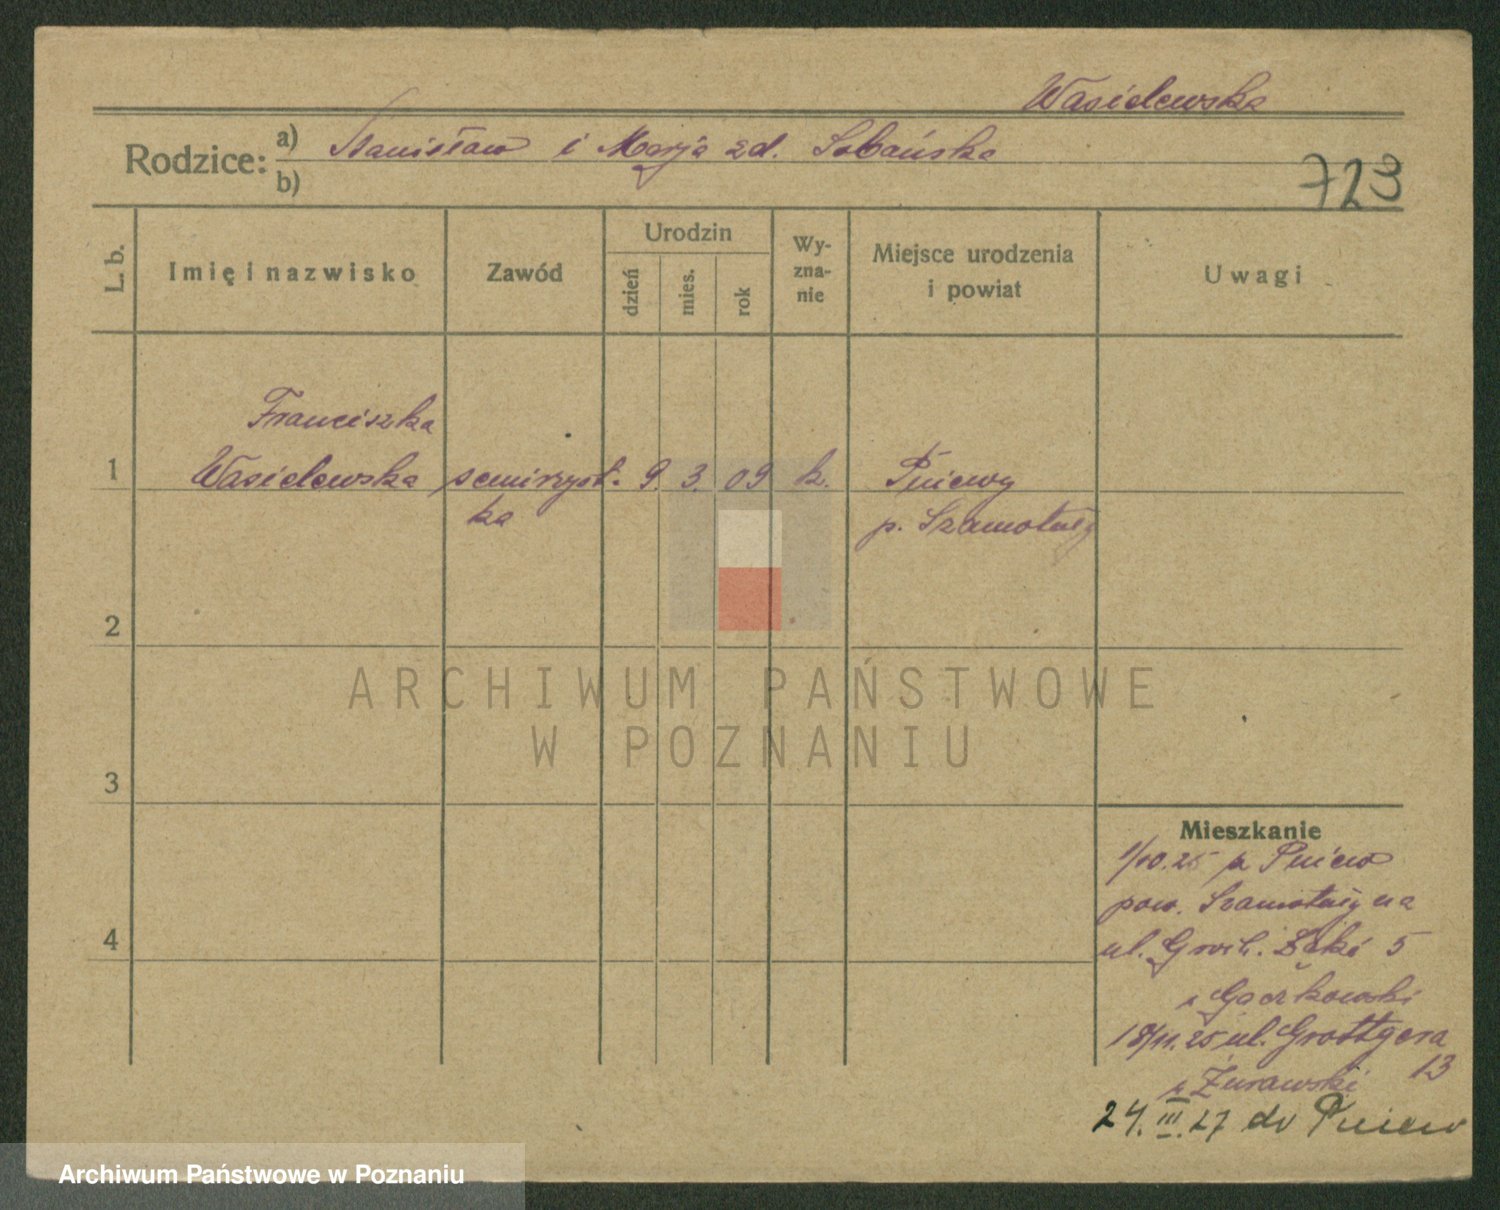 Wasielewska
Rodzice: a) Stanisław i Marja zd. Sobańska
b)
723
L. b.
Imię i nazwisko
Zawód
Urodzin
dzień
mies.
rok
Wy-
zna-
nie
Miejsce urodzenia
i powiat
Uwagi
Franciszka
1 Wasielewska 9. 3. 09 k. Pniewy
ka p. Szamotuły
2
ARCHIWUM PAŃSTWOWE
W POZNANIU
3
Mieszkanie
1/10.25 z Pniew
pow. Szamotuły na
4
ul. Łąki 5
18/11.25 ul. Grottgera
13
u Żurawski
24.III.27 do Pniew
Archiwum Państwowe w Poznaniu